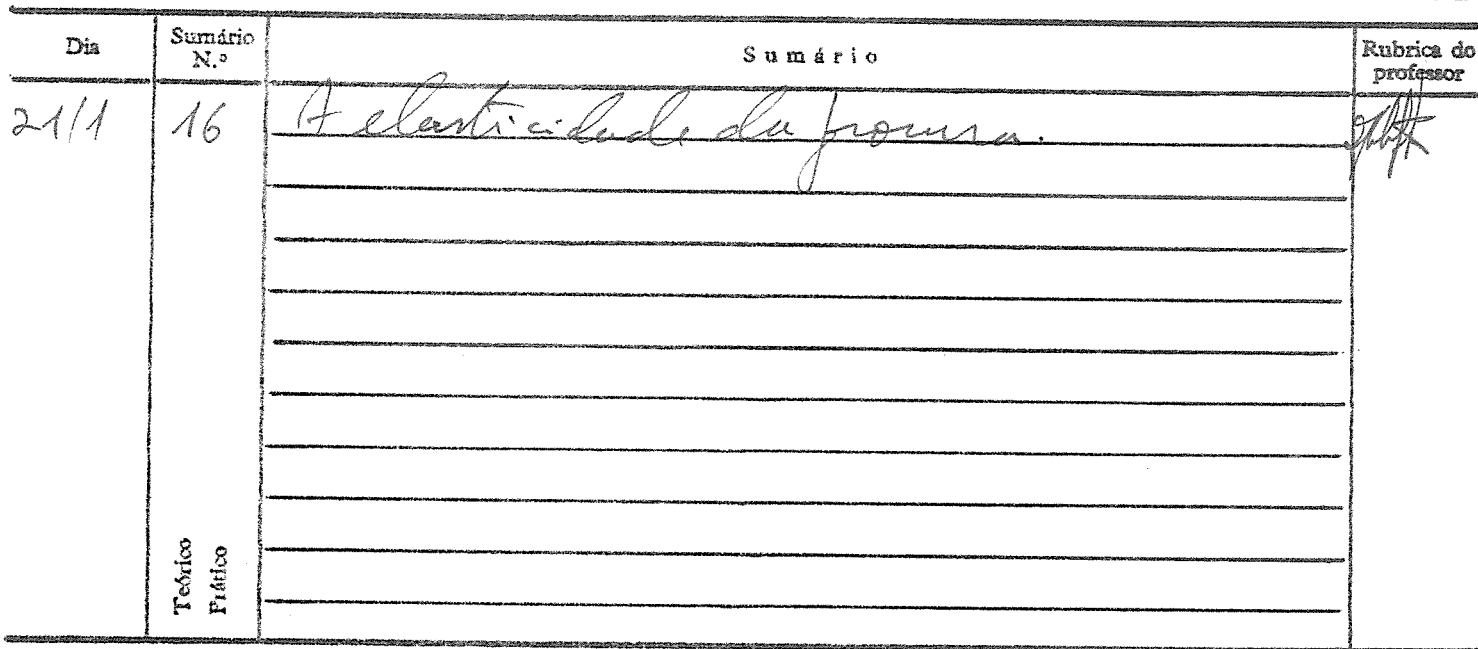 Dia Sumário N.º Sumário Rubrica do professor
21/1 16 A elasticidade da procura.
Teórico
Prático